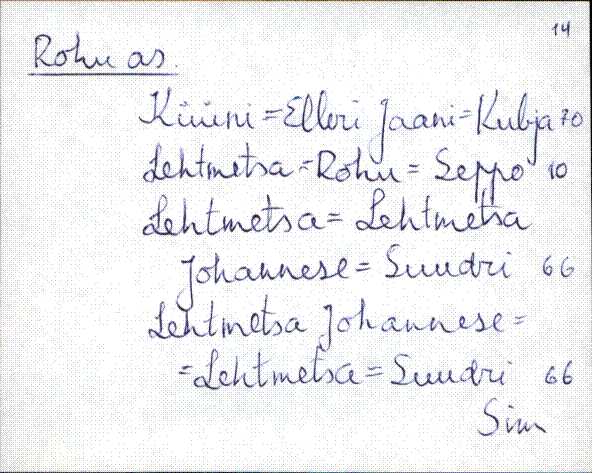 14
Rohu as.
Küüni = Elleri Jaani = Kubja 70
Lehtmetsa = Rohu = Seppo 10
Lehtmetsa = Lehtmetsa
Johannese = Suudri 66
Lehtmetsa Johannese =
= Lehtmetsa = Suudri 66
Sim